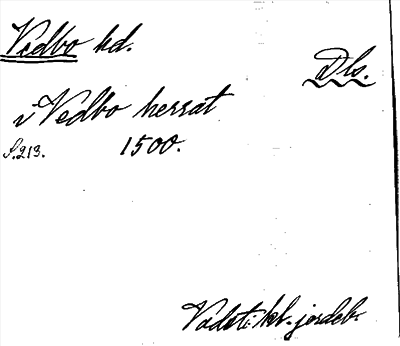 Vedbo hd.
Dls.
i Vedbo herrat
S. 213. 1500.
Vadst: kl. jordeb.